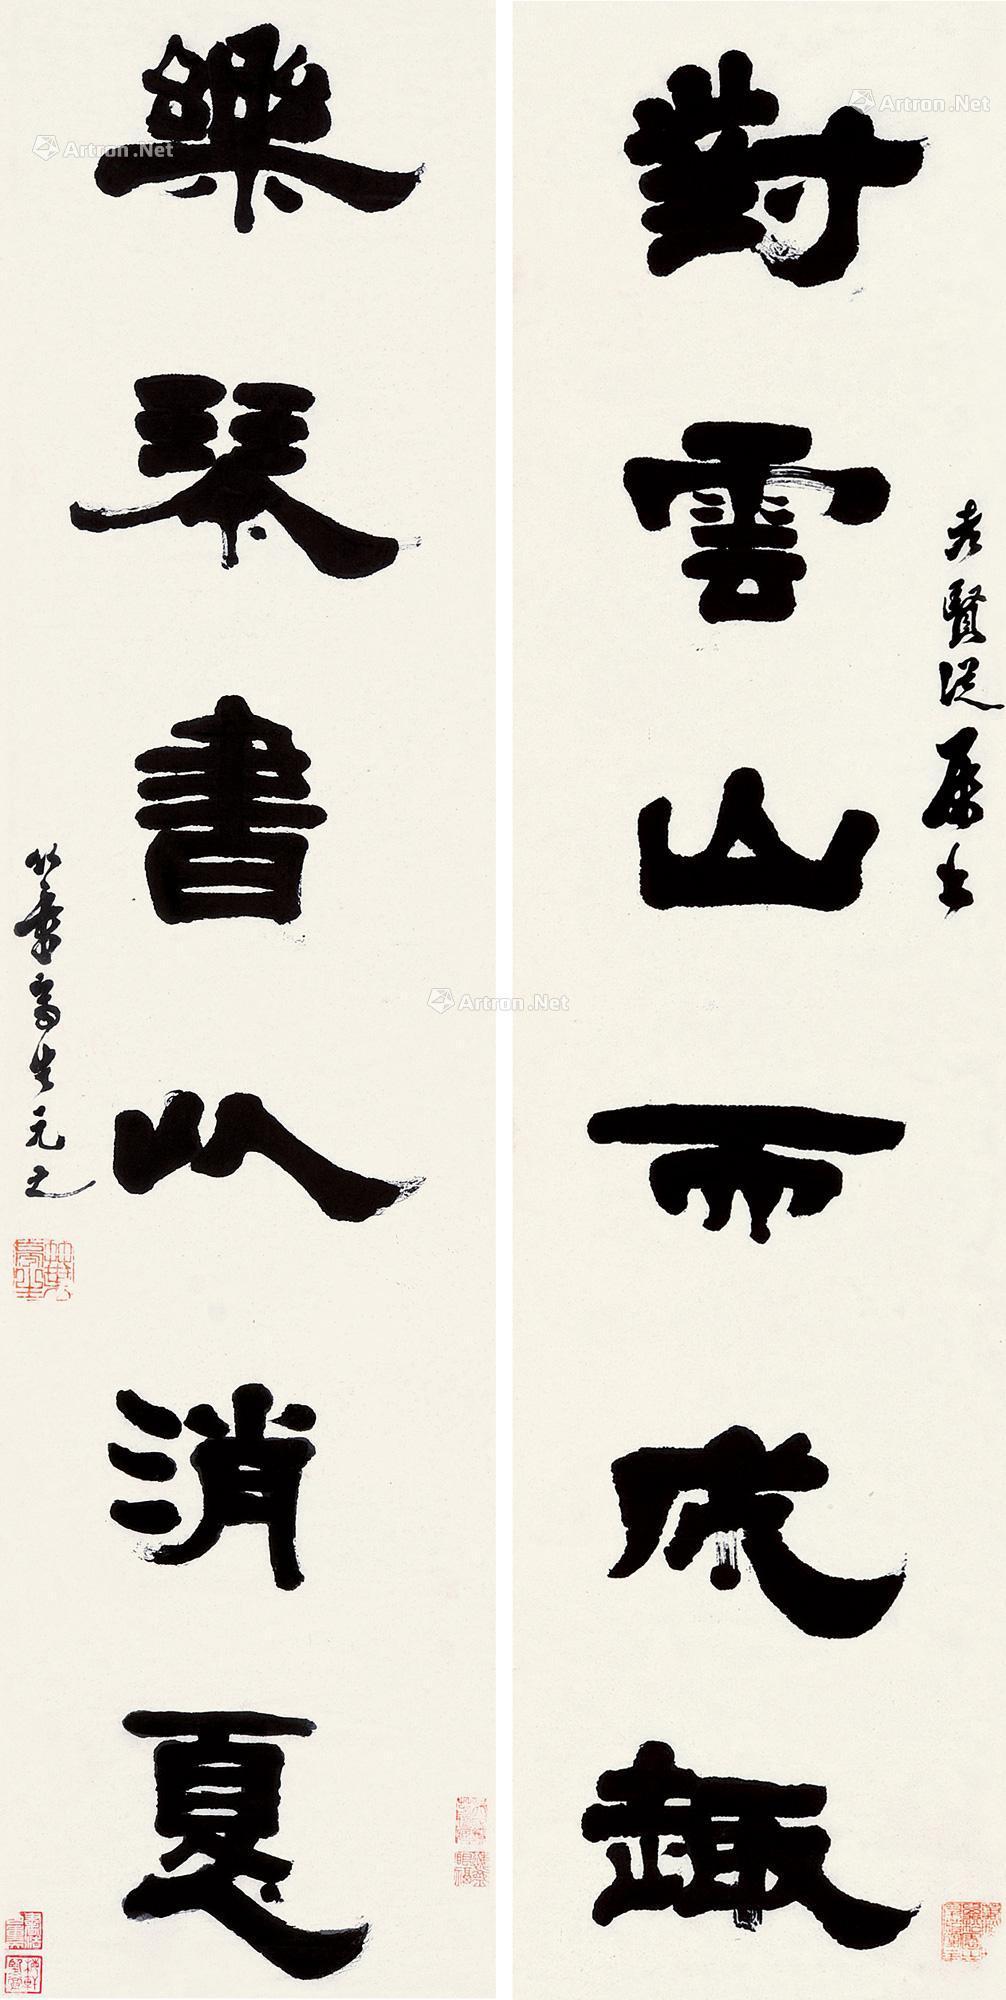 對雲山而成趣
老賢從屬書
樂琴書以消夏
竹叟高生元之
Artron.Net
Artron.Net
Artron.Net